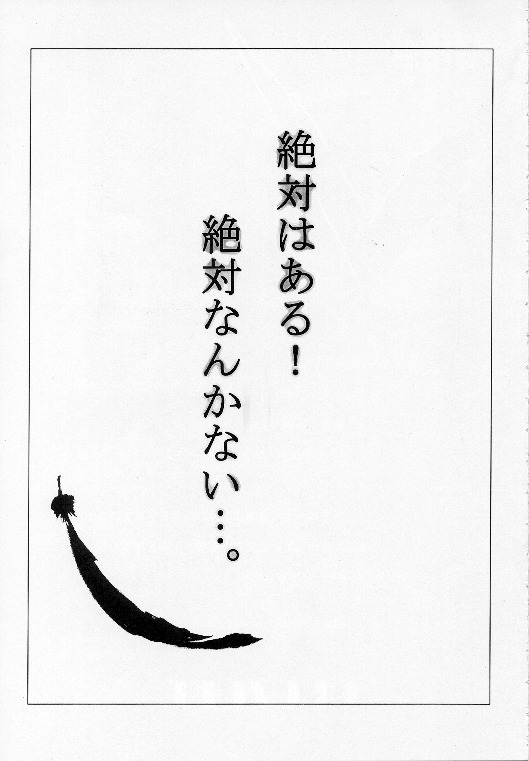 絶対はある!
絶対なんかない…。